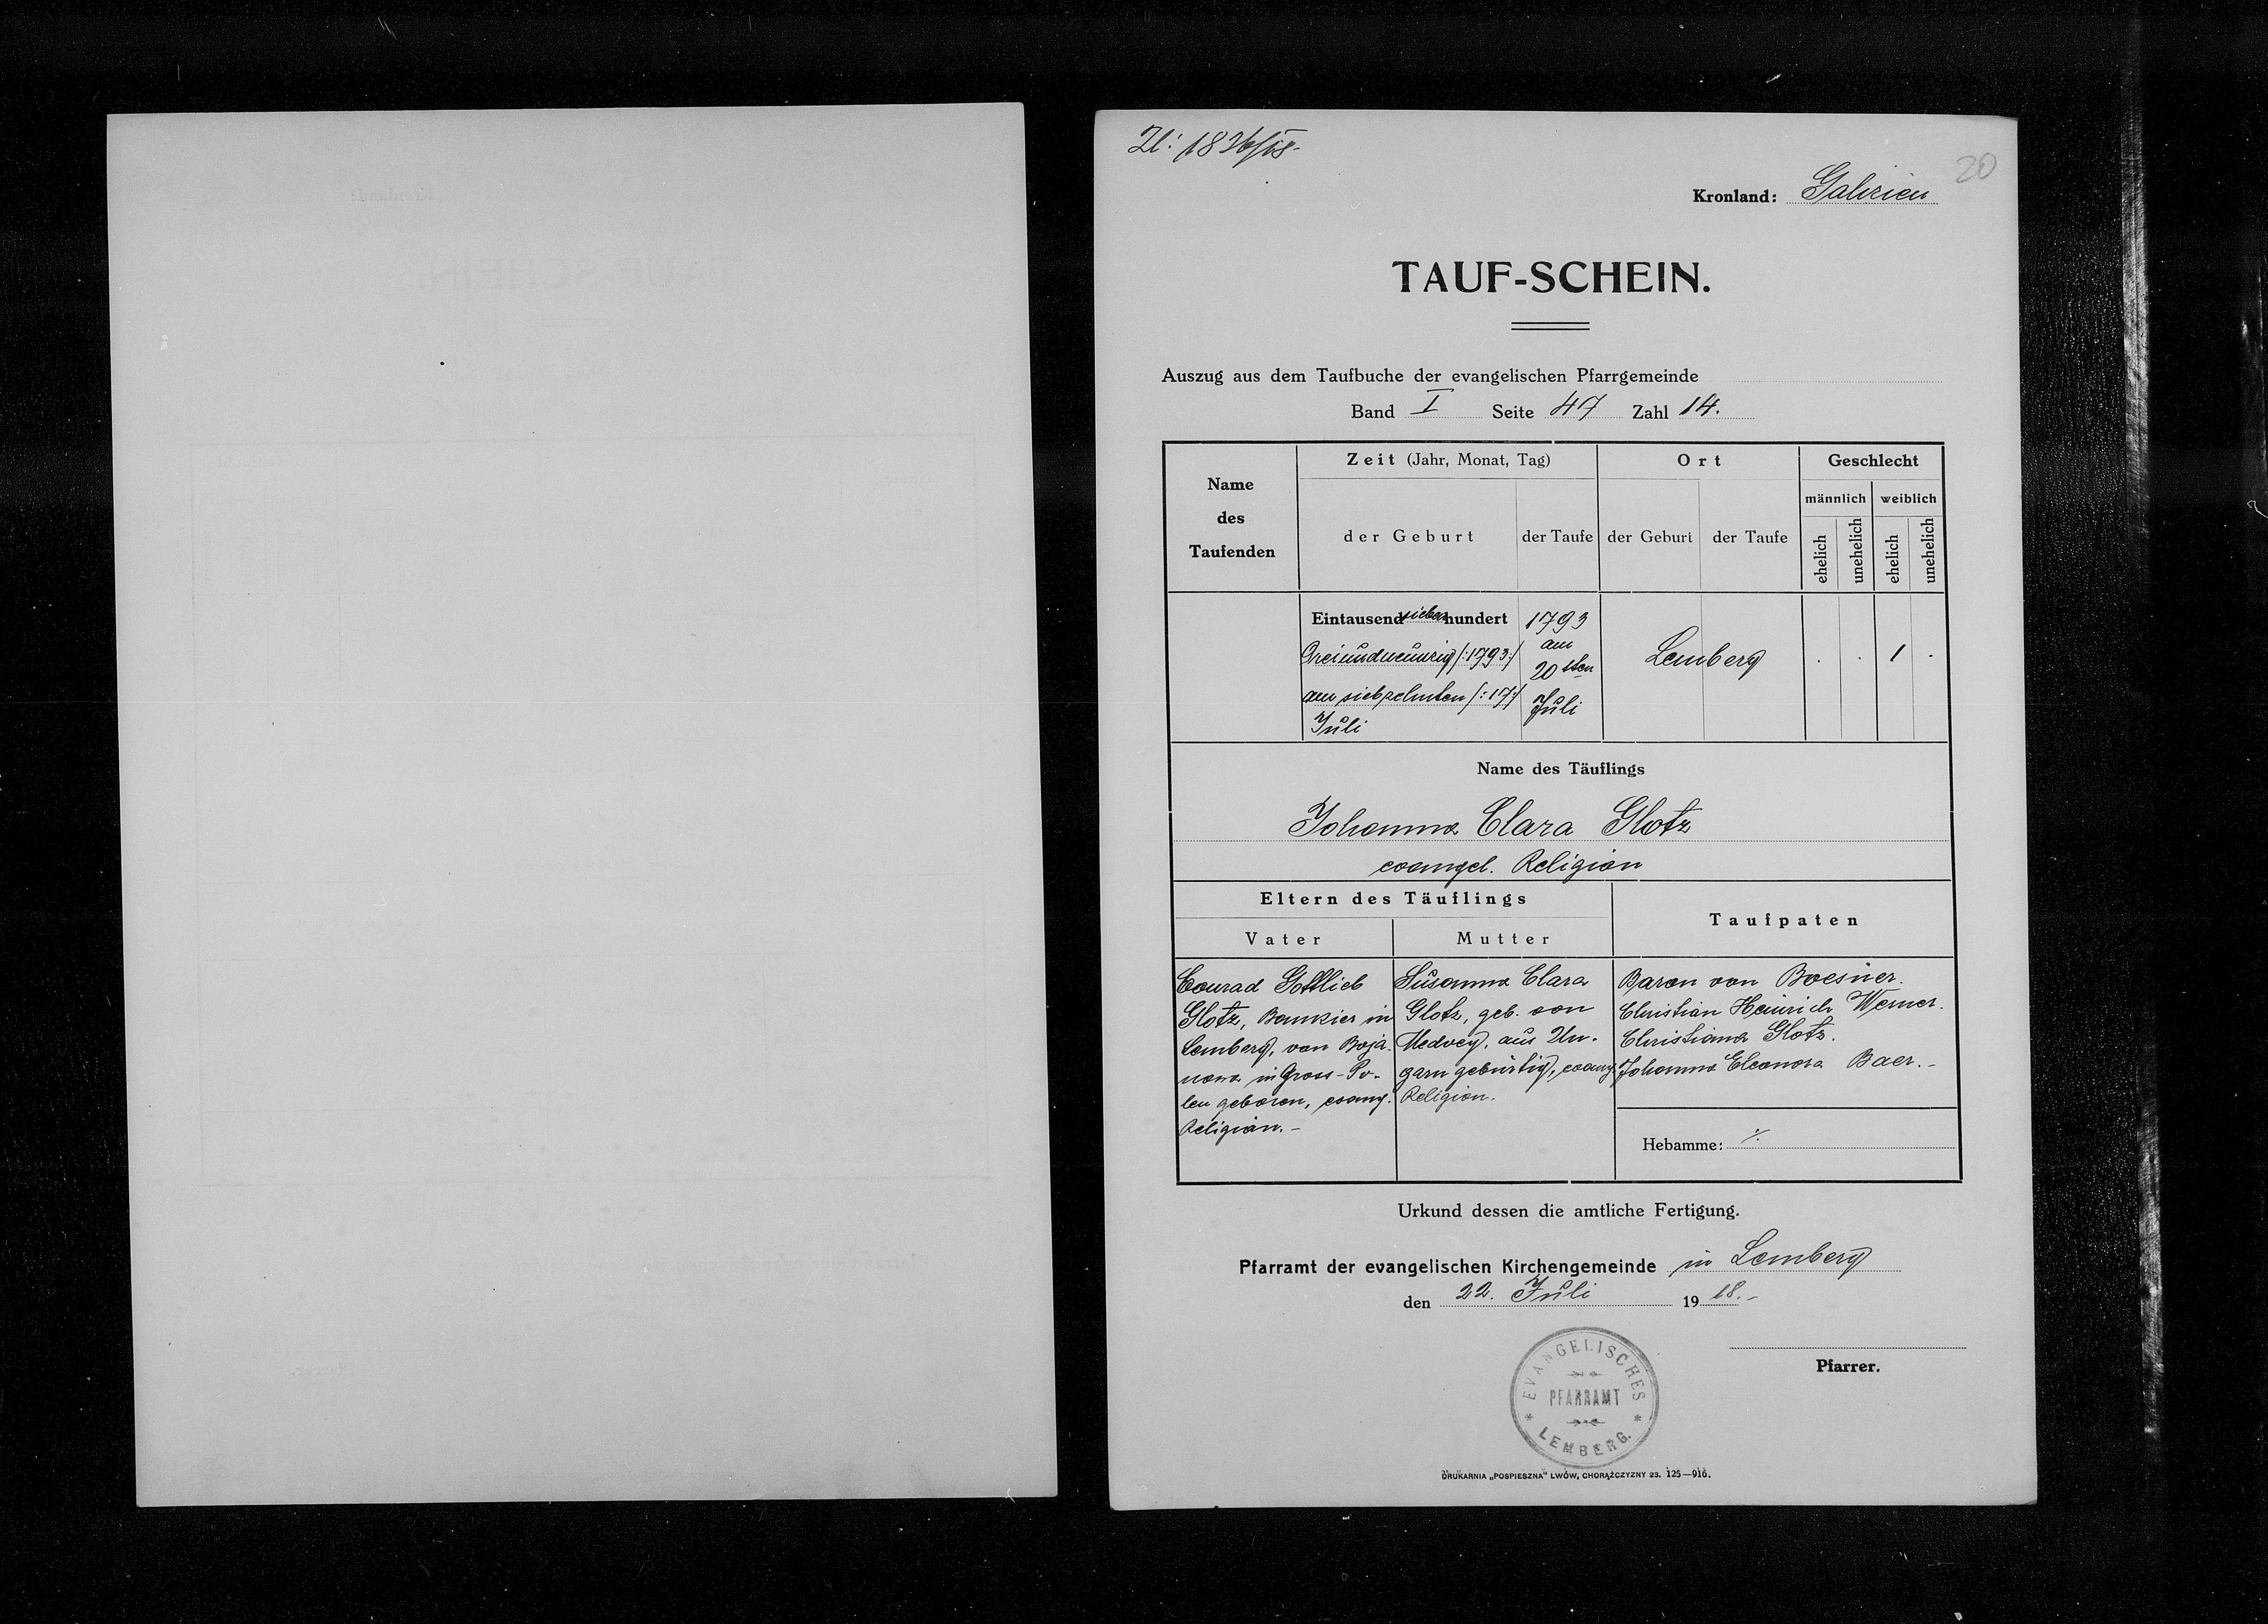 Zl: 1826/18.
20
Kronland: Galizien
TAUF-SCHEIN.
Auszug aus dem Taufbuche der evangelischen Pfarrgemeinde
Band I Seite 47 Zahl 14.
Name des Taufenden
Zeit (Jahr, Monat, Tag)
Ort
Geschlecht
männlich weiblich
der Geburt der Taufe der Geburt der Taufe ehelich unehelich ehelich unehelich
Eintausend siebenhundert
Dreiundneunzig /:1793:/
am siebzehnten /:17:/
Juli
1793
am
20sten
Juli
Lemberg
. . 1 .
Name des Täuflings
Johanna Clara Glotz
evangel. Religion
Eltern des Täuflings
Taufpaten
Vater Mutter
Conrad Gottlieb
Glotz, Bankier in
Lemberg, von Boja-
nowo in Gross-Po-
len geboren, evang.
Religion.-
Susanna Clara
Glotz, geb. von
Medvey, aus Un-
garn gebürtig, evang.
Religion.
Baron von Boesner.
Christian Heinrich Werner.
Christiana Glotz.
Johanna Eleonora Baer.-
Hebamme: ·/.
Urkund dessen die amtliche Fertigung.
Pfarramt der evangelischen Kirchengemeinde in Lemberg
den 22. Juli 1918.-
Pfarrer.
EVANGELISCHES
PFARRAMT
LEMBERG.
DRUKARNIA „POSPIESZNA" LWÓW, CHORĄŻCZYZNY 23. 125—916.